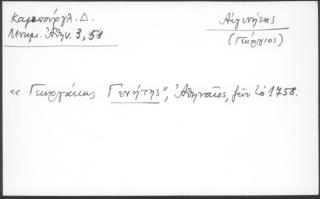 Καμπούργλ. Δ.
Μνημ. Ἀθην. 3, 51
Αἰγινήτης
(Γεώργιος)
«Γεωργάκης Γενήτης", Ἀθηναῖος, ζῶν τό 1758.